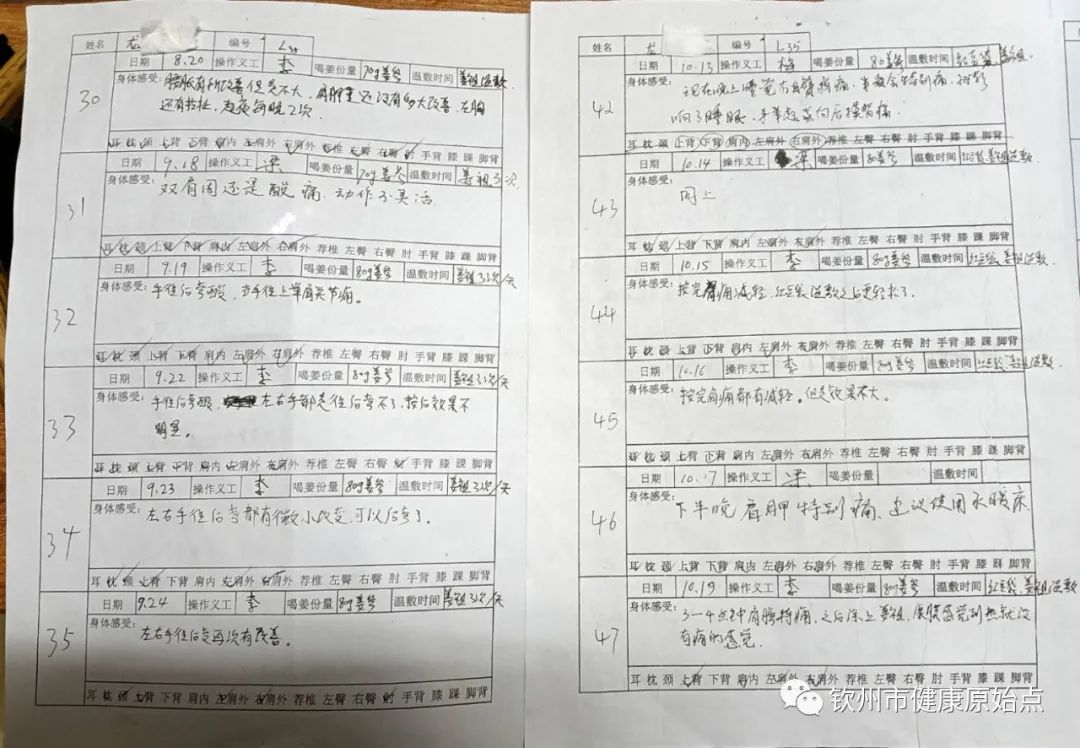 姓名 尤 编号 L35
30 日期 8.20 操作义工 李 喝姜份量 70g姜参 温敷时间 姜祖温敷
身体感受: 腰胀有所改善但是不大, 肩胛里还没有多大改善, 左胸
还有拉扯, 起夜每晚2次
耳 枕 颈 上背 下背 肩内 左肩外 右肩外 荐椎 左臀 右臀 肘 手背 膝 踝 脚背
31 日期 9.18 操作义工 梁 喝姜份量 70g姜参 温敷时间 姜祖3次
身体感受: 双肩周还是酸痛, 动作不灵活
耳 枕 颈 上背 下背 肩内 左肩外 右肩外 荐椎 左臀 右臀 肘 手背 膝 踝 脚背
32 日期 9.19 操作义工 李 喝姜份量 80g姜参 温敷时间 姜祖3次/天
身体感受: 手往后弯酸, 手往上举肩关节痛。
耳 枕 颈 上背 下背 肩内 左肩外 右肩外 荐椎 左臀 右臀 肘 手背 膝 踝 脚背
33 日期 9.22 操作义工 李 喝姜份量 80g姜参 温敷时间 姜祖3次/天
身体感受: 手往后弯酸, 左右手都是往后弯不了, 按后效果不
明显。
耳 枕 颈 上背 下背 肩内 左肩外 右肩外 荐椎 左臀 右臀 肘 手背 膝 踝 脚背
34 日期 9.23 操作义工 李 喝姜份量 80g姜参 温敷时间 姜祖3次/天
身体感受: 左右手往后弯都有微小改变, 可以后弯了。
耳 枕 颈 上背 下背 肩内 左肩外 右肩外 荐椎 左臀 右臀 肘 手背 膝 踝 脚背
35 日期 9.24 操作义工 李 喝姜份量 80g姜参 温敷时间 姜祖3次/天
身体感受: 左右手往后弯再次有改善。
耳 枕 颈 上背 下背 肩内 左肩外 右肩外 荐椎 左臀 右臀 肘 手背 膝 踝 脚背
姓名 尤 编号 L35
42 日期 10.13 操作义工 梅 喝姜份量 80姜参 温敷时间 红豆袋 姜祖
身体感受: 现在晚上睡觉右肩痛, 半夜会特别痛, 都影
响了睡眠, 手举起或向后摸督痛.
耳 枕 颈 上背 下背 肩内 左肩外 右肩外 荐椎 左臀 右臀 肘 手背 膝 踝 脚背
43 日期 10.14 操作义工 梁 喝姜份量 80姜参 温敷时间 红豆袋姜祖温敷
身体感受: 同上
耳 枕 颈 上背 下背 肩内 左肩外 右肩外 荐椎 左臀 右臀 肘 手背 膝 踝 脚背
44 日期 10.15 操作义工 李 喝姜份量 80g姜参 温敷时间 红豆袋, 姜祖温敷
身体感受: 按完肩痛减轻, 红豆袋温敷之后更轻松了.
耳 枕 颈 上背 下背 肩内 左肩外 右肩外 荐椎 左臀 右臀 肘 手背 膝 踝 脚背
45 日期 10.16 操作义工 李 喝姜份量 80g姜参 温敷时间 红豆袋, 姜祖温敷
身体感受: 按完肩痛都有减轻。但是效果不大.
耳 枕 颈 上背 下背 肩内 左肩外 右肩外 荐椎 左臀 右臀 肘 手背 膝 踝 脚背
46 日期 10.17 操作义工 梁 喝姜份量 温敷时间
身体感受: 下半晚肩胛特别痛, 建议使用水暖床
耳 枕 颈 上背 下背 肩内 左肩外 右肩外 荐椎 左臀 右臀 肘 手背 膝 踝 脚背
47 日期 10.19 操作义工 李 喝姜份量 80g姜参 温敷时间 红豆袋, 姜祖温敷
身体感受: 3-4点钟肩膀特痛, 之后涂上姜祖, 感觉到热就没
有痛的感觉.
耳 枕 颈 上背 下背 肩内 左肩外 右肩外 荐椎 左臀 右臀 肘 手背 膝 踝 脚背
钦州市健康原始点